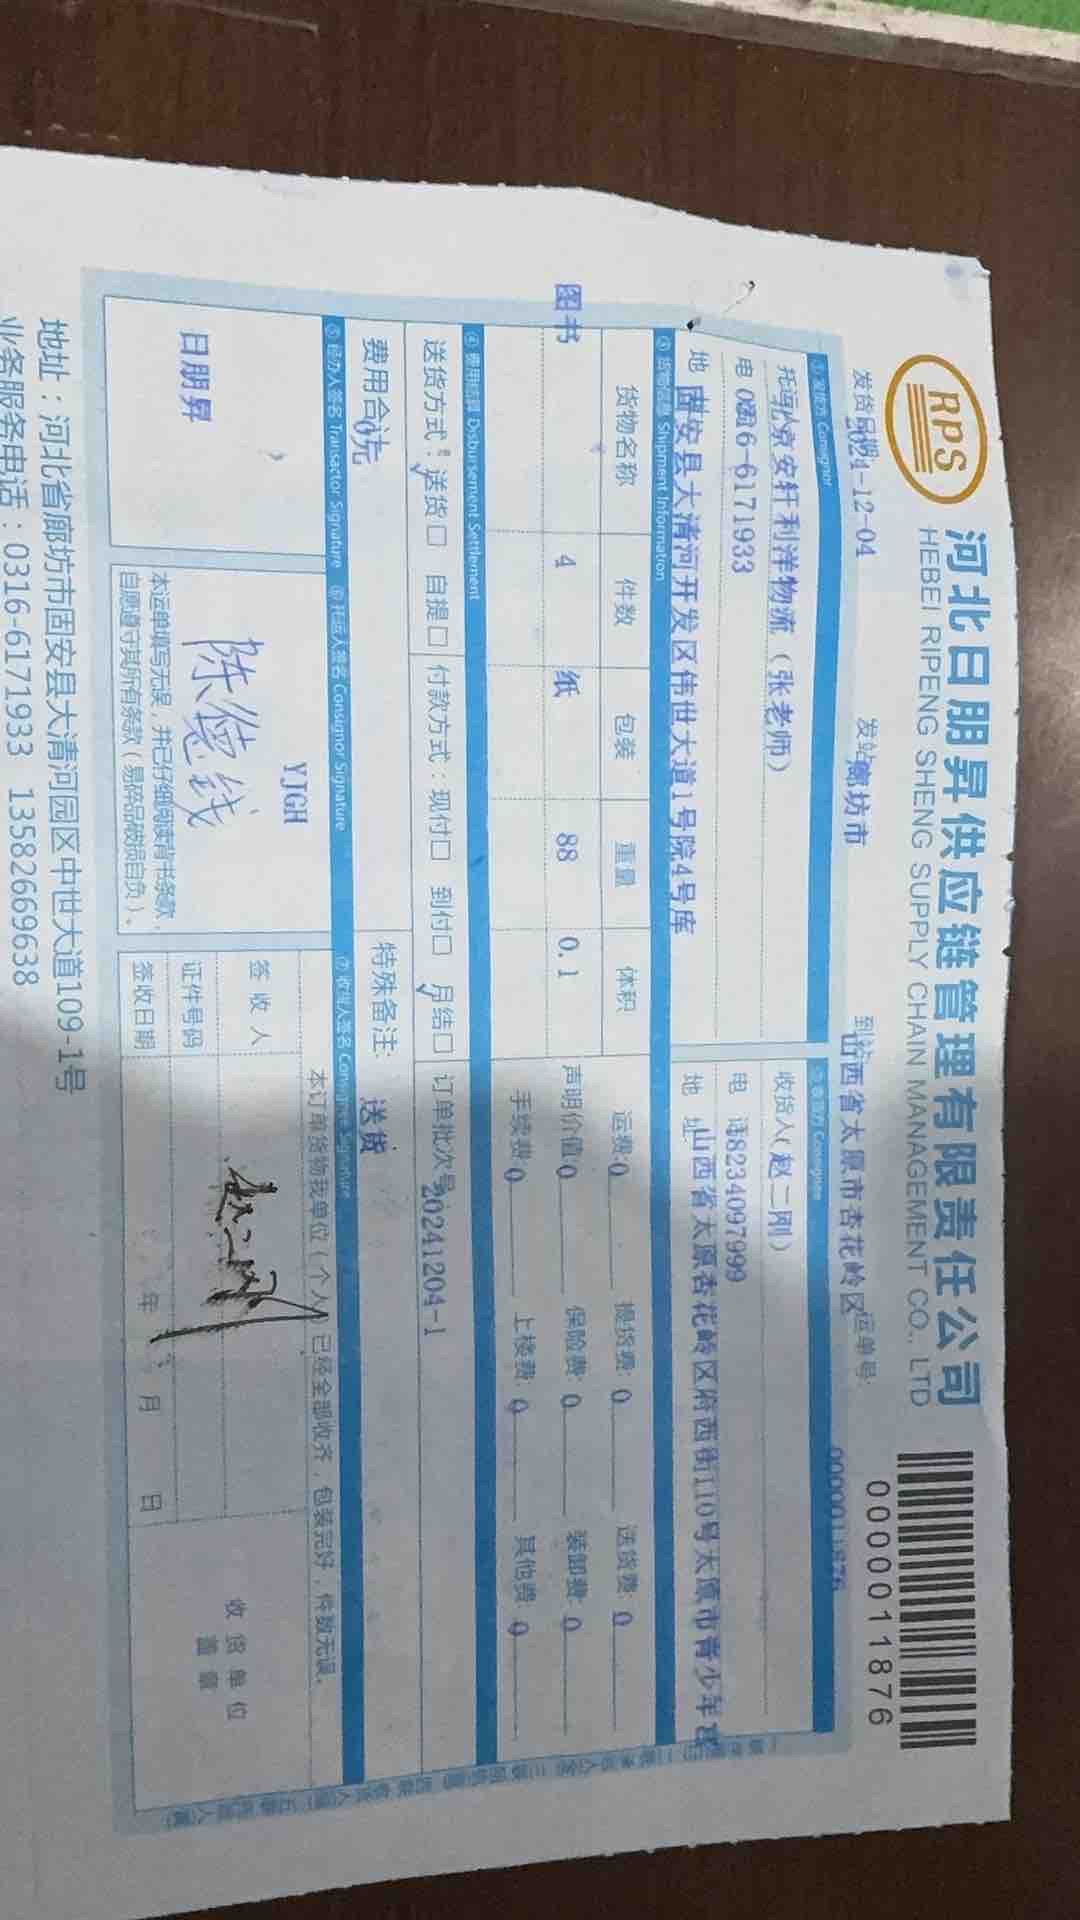 RPS
河北日朋昇供应链管理有限责任公司
HEBEI RIPENG SHENG SUPPLY CHAIN MANAGEMENT CO., LTD
0000011876
发货日期 2024-12-04 发站 廊坊市 到站 山西省太原市杏花岭区 运单号: 0000011876
① 发货方 Consignor
托运人 京安轩利洋物流（张老师）
电 话 0316-6171933
地 固安县大清河开发区伟世大道1号院4号库
② 收货方 Consignee
收货人（赵二刚）
电 话 18234097999
地 址 山西省太原杏花岭区府西街110号太原市青少年宫
③ 货物信息 Shipment Information
货物名称 件数 包装 重量 体积
图书 4 纸 88 0.1
运费:0 提货费: 0 送货费: 0
声明价值:0 保险费: 0 装卸费: 0
手续费:0 上楼费: 0 其他费: 0
④ 费用结算 Disbursement Settlement
送货方式: 送货□ 自提□ 付款方式: 现付□ 到付□ 月结□ 订单批次号 20241204-1
费用合计 0元 特殊备注: 送货
⑤ 经办人签名 Transactor Signature ⑥ 托运人签名 Consignor Signature ⑦ 收货人签名 Consignee Signature
日朋昇
YJGH
本运单填写无误，并已仔细阅读背书条款，
自愿遵守其所有条款（易碎品破损自负）。
本订单货物我单位（个人）已经全部收齐，包装完好，件数无误。
签 收 人 赵二刚
证件号码
签收日期 年 月 日
收 货 单 位
盖 章
地址：河北省廊坊市固安县大清河园区中世大道109-1号
业务服务电话：0316-6171933 13582669638